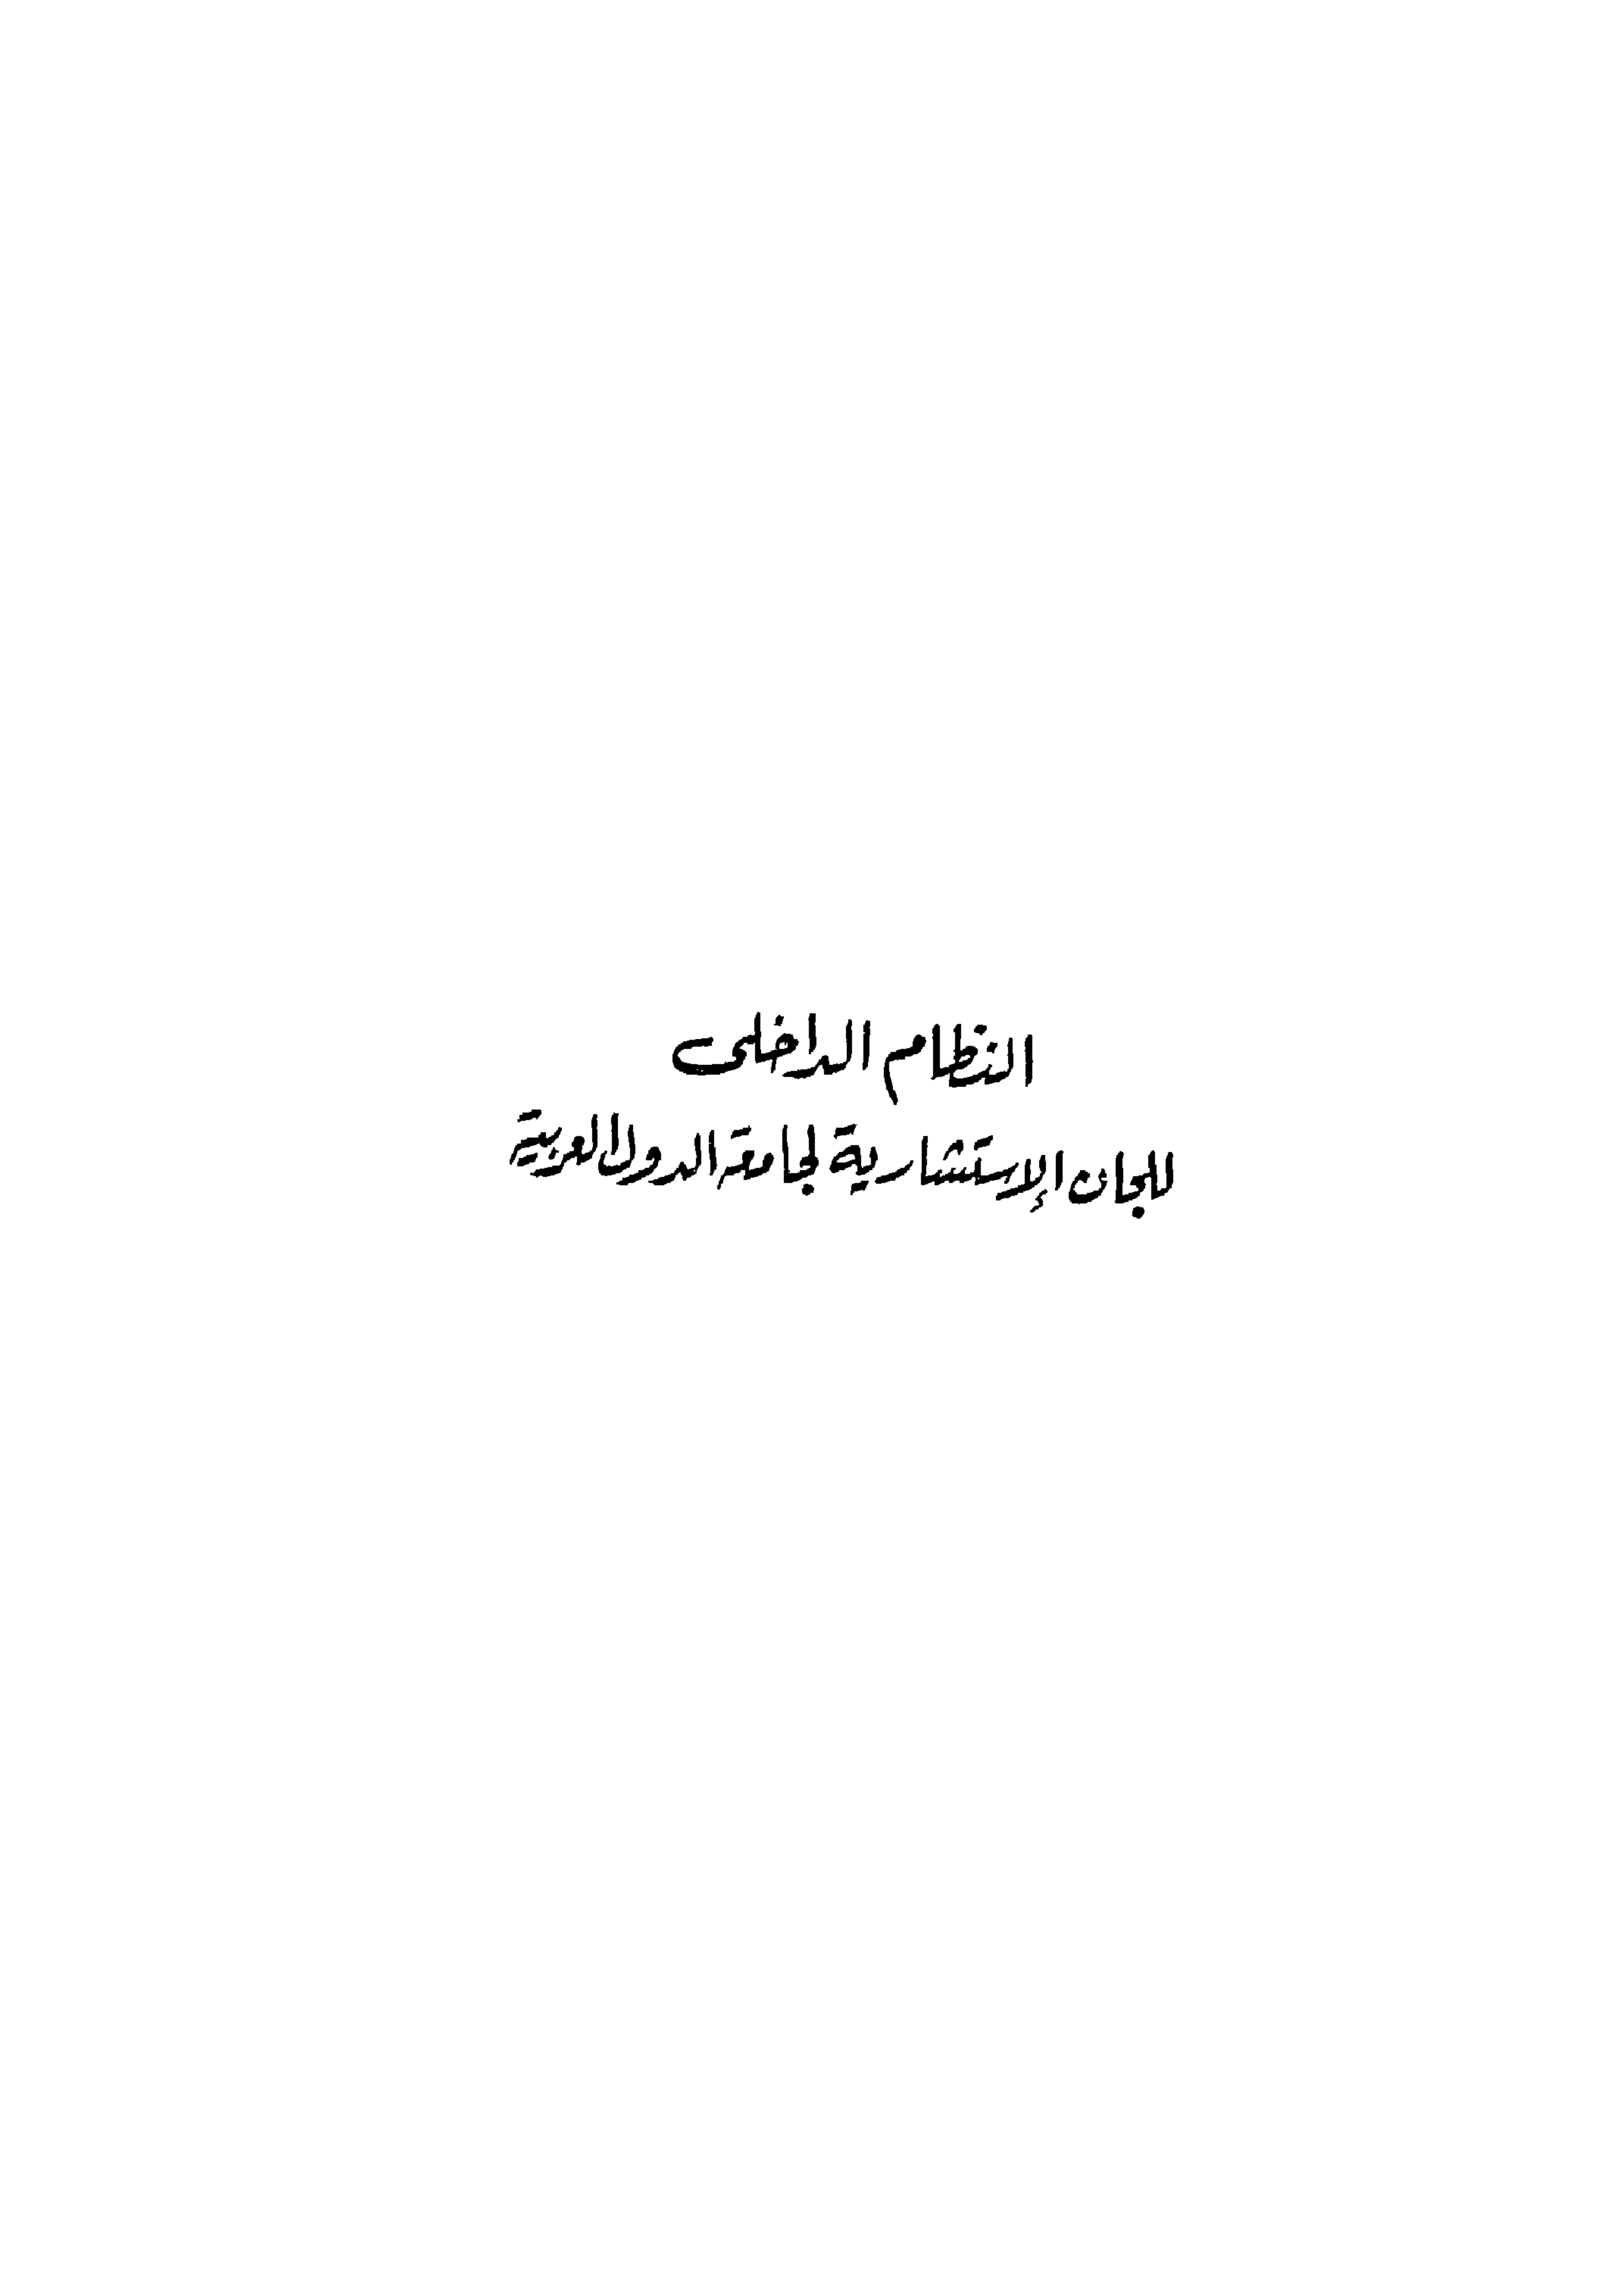 النظام الداخلى
للجان الإستشارية لجامعة الدول العربية